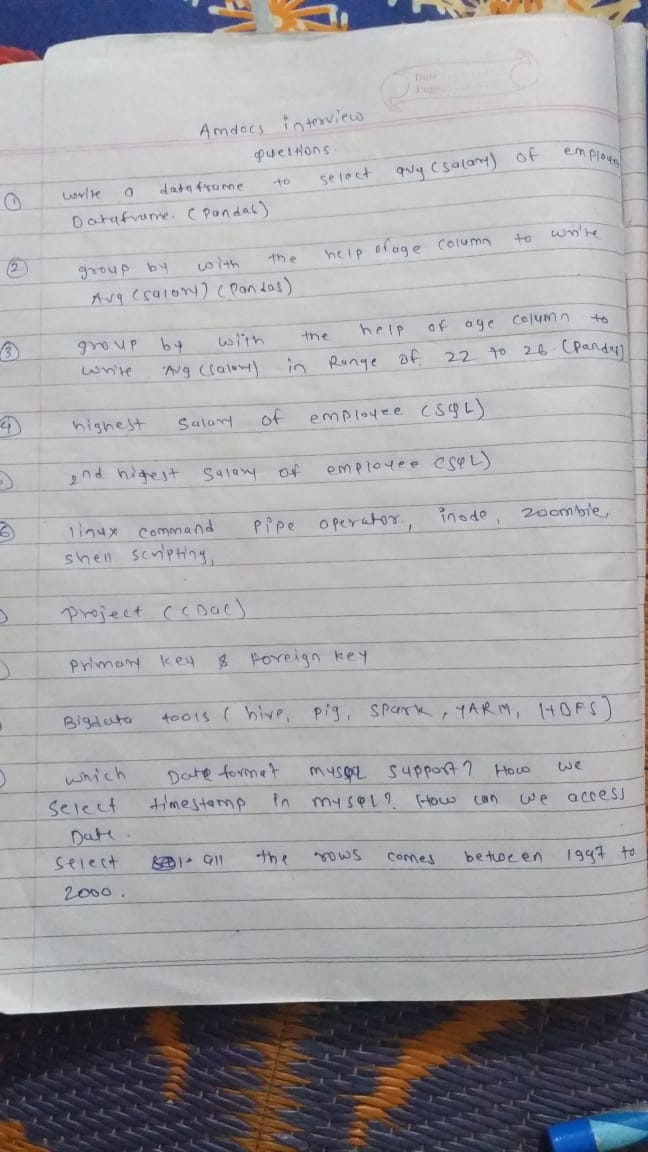 Date
Page
Amdocs interview
questions.
① write a dataframe to select avg (salary) of
Dataframe. (Pandas)
② group by with the help of age column to write
Avg (salary) (Pandas)
③ group by with the help of age column to
write Avg (salary) in Range of 22 to 26. (Pandas)
④ highest Salary of employee (SQL)
2nd higest Salary of employee (SQL)
⑥ linux command pipe operator, inode, zoombie,
shell scripting,
Project (CDAC)
primary key & Foreign key
Bigdata tools (hive, pig, spark, YARM, HDFS)
which Date format mysql support? How we
select timestamp in mysql? How can we access
Date.
select all the rows comes between 1997 to
2000.